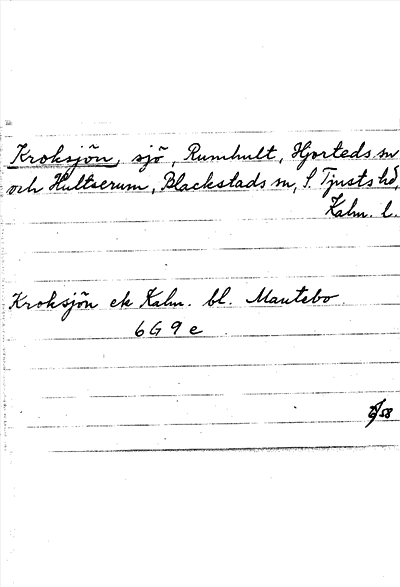 Kroksjön, sjö, Rumhult, Hjorteds sn
och Hultserum, Blackstads sn, S. Tjusts hd,
Kalm. l.
Kroksjön ek Kalm. bl. Mantebo
6 G 9 e